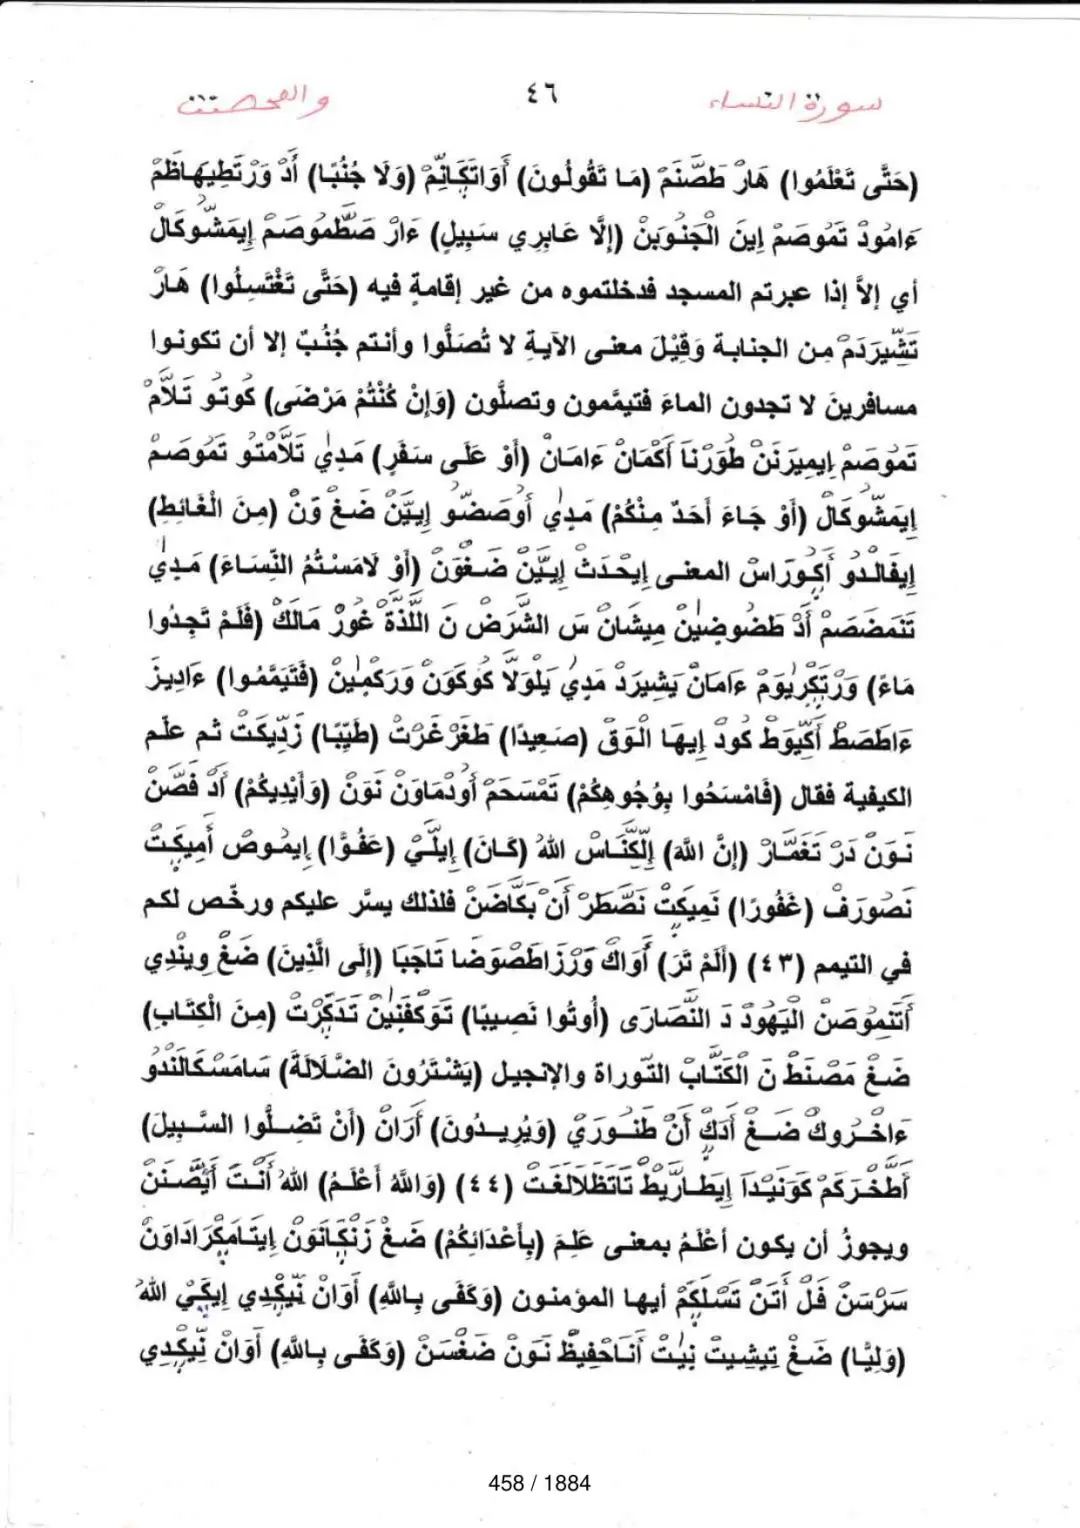 سورة النساء ٤٦ والمحصنت
(حَتَّى تَعْلَمُوا) هَارْ طَصَّنَمْ (مَا تَقُولُونَ) أَوَاتَكَانِّمْ (وَلَا جُنُبًا) أَدْ وَرْتَطِيهَاظَمْ
ءَامُودْ تَمُوصَمْ اِينَ الْجَنُوبَنْ (إِلَّا عَابِرِي سَبِيلٍ) ءَارْ صَطَّمُوصَمْ إِيمَشُّوكَالْ
أي إلاَّ إذا عبرتم المسجد فدخلتموه من غير إقامةٍ فيه (حَتَّى تَغْتَسِلُوا) هَارْ
تَشِّيرَدَمْ مِن الجنابة وَقِيْلَ معنى الآيةِ لا تُصَلُّوا وأنتم جُنُبٌ إلا أن تكونوا
مسافرينَ لا تجدون الماءَ فتيمَّمون وتصلُّون (وَإِنْ كُنْتُمْ مَرْضَى) كُوتُو تَلَّامْ
تَمُوصَمْ إِيمِيرَنَنْ طُورْنَا أَكْمَانْ ءَامَانْ (أَوْ عَلَى سَفَرٍ) مَدِي تَلَّامْتُو تَمُوصَمْ
إِيمَشُّوكَالْ (أَوْ جَاءَ أَحَدٌ مِنْكُمْ) مَدِي أُوصَضُّو إِيَيَّنْ ضَغْ وَنْ (مِنَ الْغَائِطِ)
إِيفَالْدُو أَكُورَاسْ المعنى إِيحْدَثْ إِيَيَّنْ ضَغْوَنْ (أَوْ لَامَسْتُمُ النِّسَاءَ) مَدِي
تَنَمَضَصَمْ أَدْ طَضُوضِينْ مِيشَانْ سَ الشَّرَضْ نَ اللَّذَّةْ غُورْ مَالَكْ (فَلَمْ تَجِدُوا
مَاءً) وَرْتَكْرِيوَمْ ءَامَانْ يَشِيرَدْ مَدِي يَلْوَلَّا كُوكَوَنْ وَرَكْمِينْ (فَتَيَمَّمُوا) ءَادِيزْ
ءَاطَصَطْ أَكَّيُوَطْ كُودْ إِيهَا الْوَقْ (صَعِيدًا) طَغَرْغَرْتْ (طَيِّبًا) زَدِّيكَتْ ثم علّم
الكيفية فقال (فَامْسَحُوا بِوُجُوهِكُمْ) تَمْسَحَمْ أُودْمَاوَنْ نَوَنْ (وَأَيْدِيكُمْ) أَدْ فَصَّنْ
نَوَنْ دَرْ تَغَمَّارْ (إِنَّ اللَّهَ) إِلَّكْنَاسْ اللهُ (كَانَ) إِيلَّيْ (عَفُوًّا) إِيمُوصْ أَمِيكَتْ
نَصُورَفْ (غَفُورًا) نَمِيكَتْ نَصَّطَرْ أَنْ بَكَّاضَنْ فلذلك يسَّر عليكم ورخّص لكم
في التيمم (٤٣) (أَلَمْ تَرَ) أَوَاكْ وَرْزَاطَصْوَضَا تَاجَبَا (إِلَى الَّذِينَ) ضَغْ وِينْدِي
أَتَنْمِوصَنْ الْيَهُودْ دَ النَّصَارَى (أُوتُوا نَصِيبًا) تَوَكْفَنِينْ تَدَكَرْتْ (مِنَ الْكِتَابِ)
ضَغْ مَصْنَطْ نَ الْكَتَّابْ التّوراة والإنجيل (يَشْتَرُونَ الضَّلَالَةَ) سَامَسْكَالَنْدُو
ءَاخْرُوكْ ضَغْ أَدَكْ أَنْ طَنُورِي (وَيُرِيدُونَ) أَرَانْ (أَنْ تَضِلُّوا السَّبِيلَ)
أَطَّخْرَكَمْ كَوَنَيْدَا إِيطَارَّيْطْ تَاتَظَلَالَغَتْ (٤٤) (وَاللَّهُ أَعْلَمُ) اللهُ أَنْتَ أَيَّصَنَنْ
ويجوزُ أن يكون أعْلَمُ بمعنى عَلِمَ (بِأَعْدَائِكُمْ) ضَغْ زَنْكَانَوَنْ إِيتَامَكْرَادَاوَنْ
سَرْسَنْ فَلْ أَتَنْ تَسْلَكَمْ أيها المؤمنون (وَكَفَى بِاللَّهِ) أَوَانْ نَّيكْدِي إِيكَيْ اللهُ
(وَلِيًّا) ضَغْ تِيشِيتْ نِيْتْ أَنَاحْفِيظْ نَوَنْ ضَغْسَنْ (وَكَفَى بِاللَّهِ) أَوَانْ نَّيكْدِي
458 / 1884